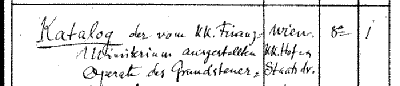 Katalog der vom KK. Finanz- Wien. 8° 1
Ministerium ausgestellten KK. Hof u.
Operate des Grundsteuer- Staatsdr.